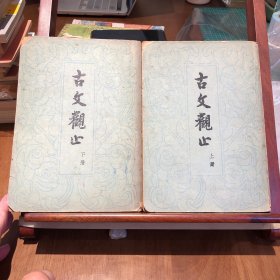 古文觀止
下册
古文觀止
上册